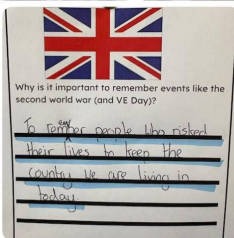 Why is it important to remember events like the
second world war (and VE Day)?
To remember people who risked
their lives to keep the
country we are living in
today.